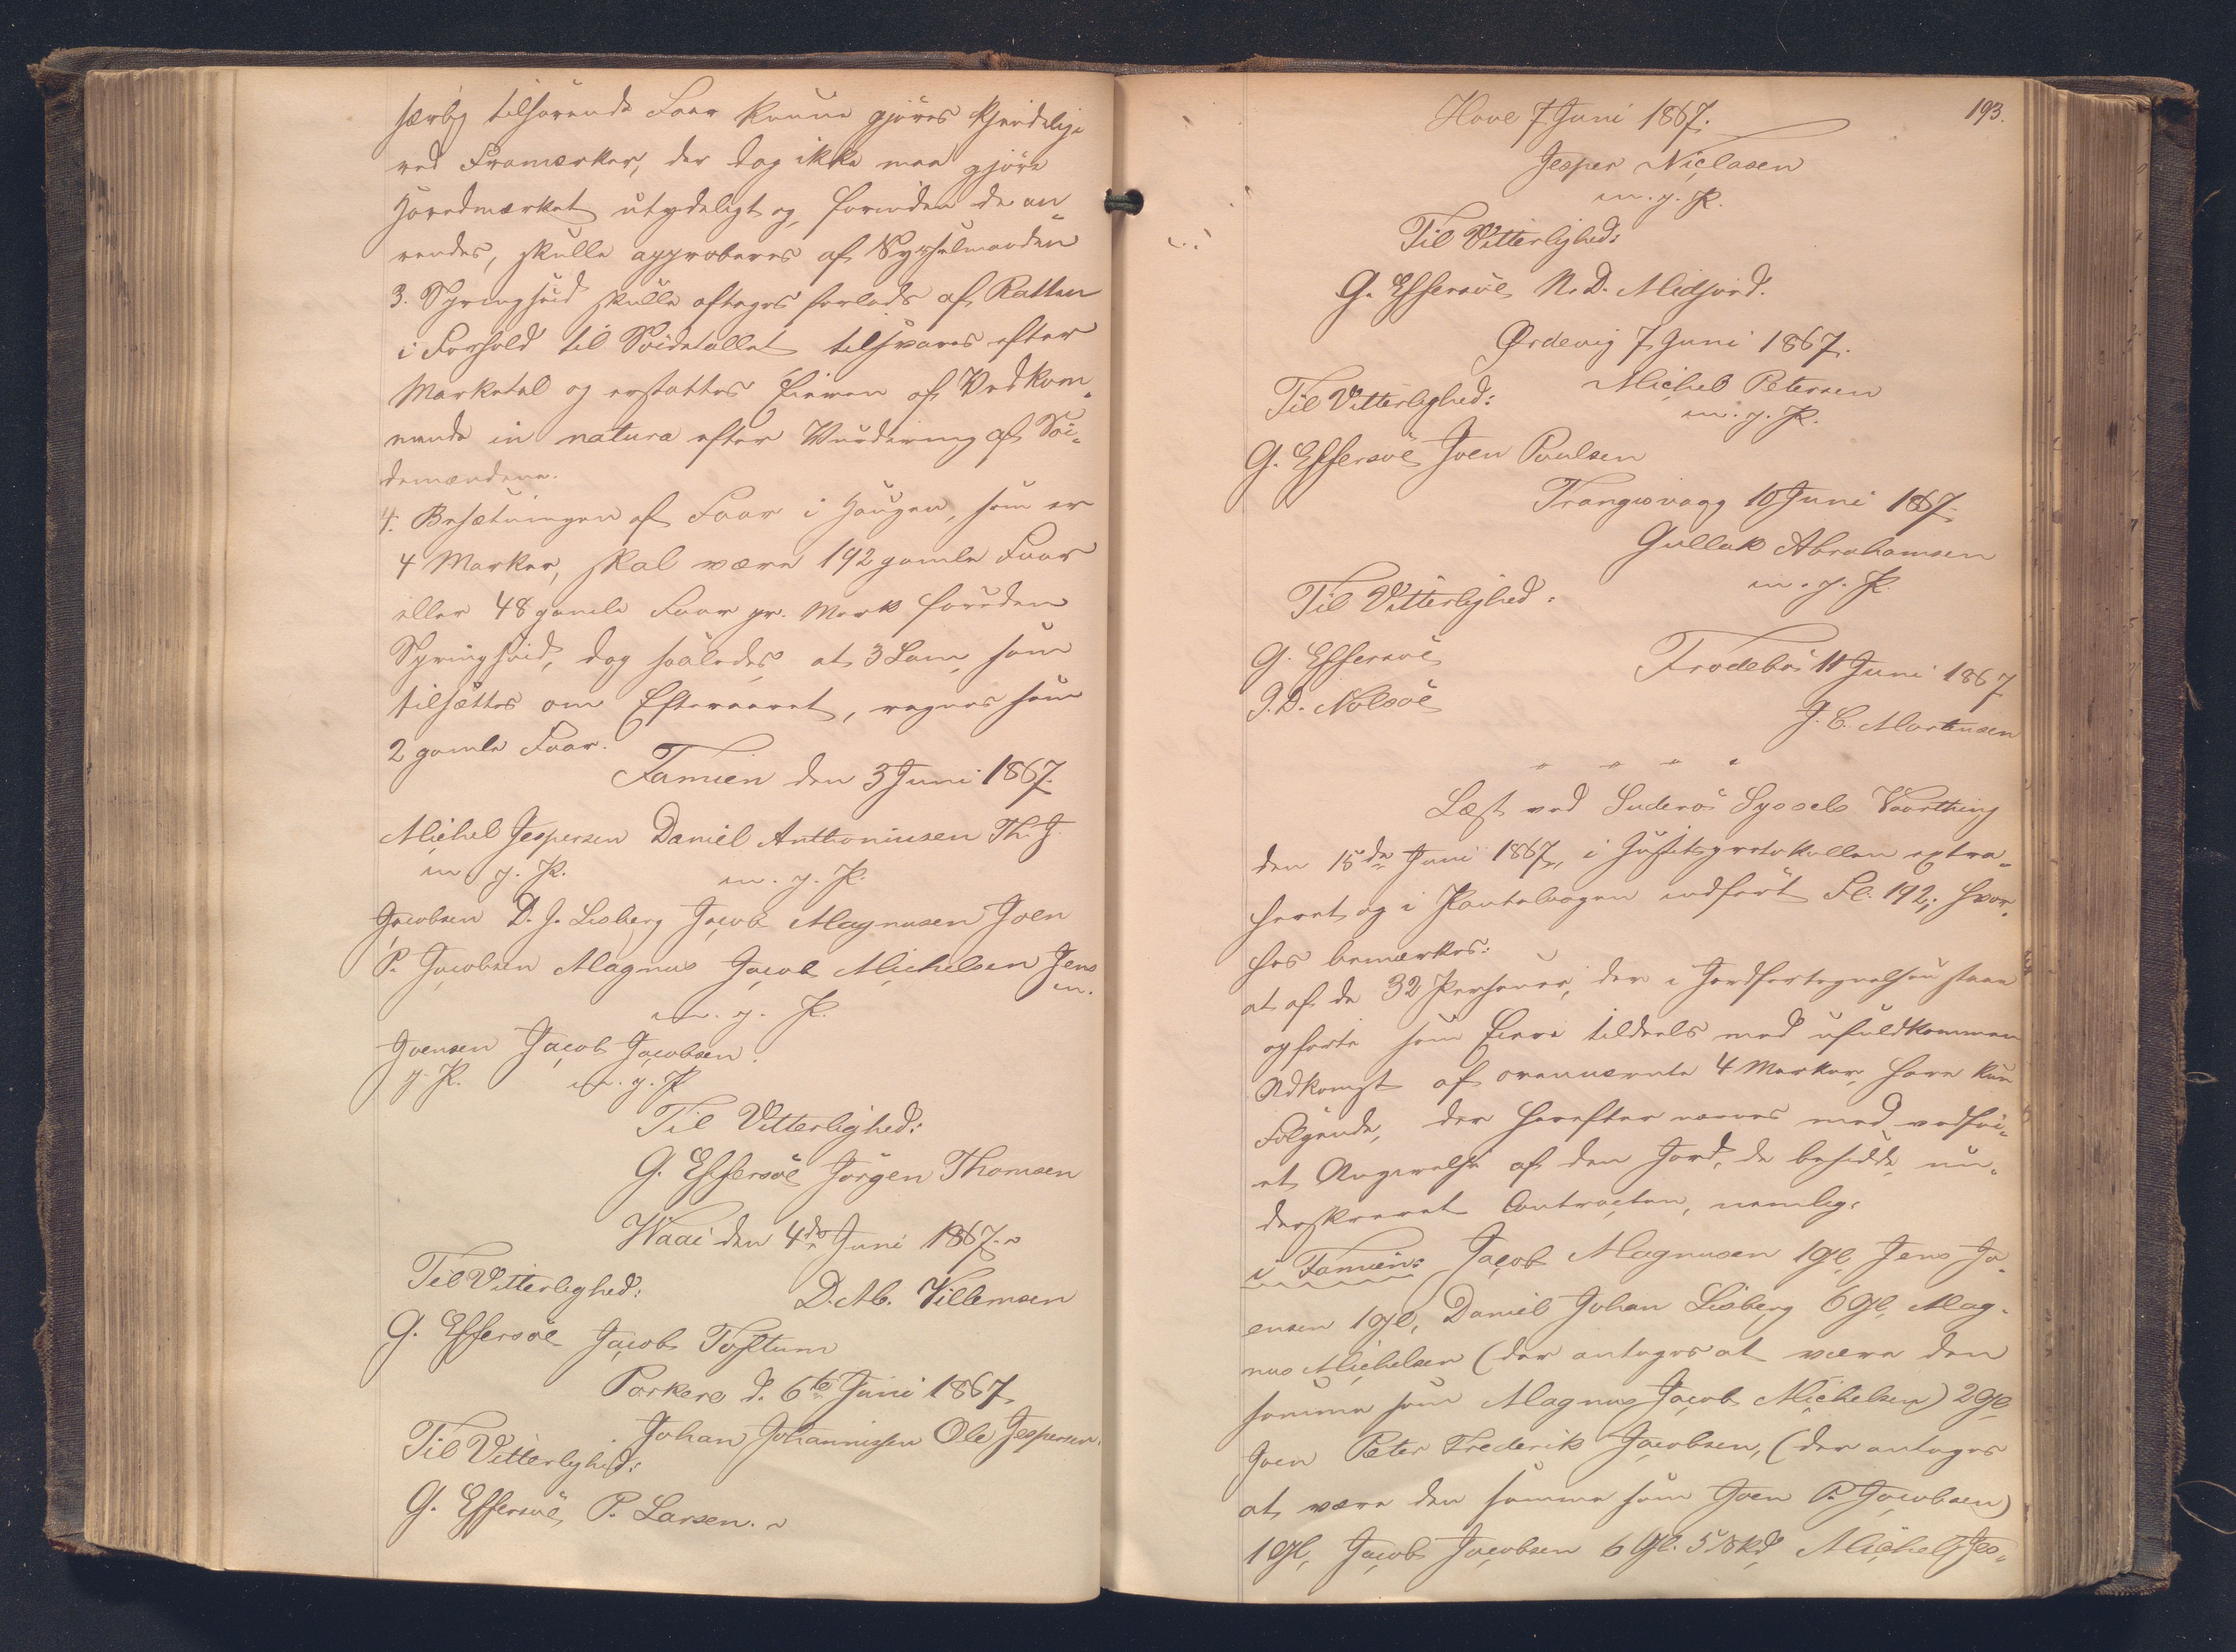 særlig tilhørende Faar kunne gjøres kjendelige
ved Framærker, der dog ikke maa gjøre
Hovedmærket utydeligt og, forinden de an-
vendes, skulle approberes af Sysselmanden
3. Springhøid skulle aftages forlods af Retten
i Forhold til Søidetallet tilsvares efter
Marketal og erstattes Eieren af Vedkom-
mende in natura efter Vurdering af Søi-
demændene.
4. Besætningen af Faar i Haugen, som er
4 Marker, skal være 192 gamle Faar
eller 48 gamle Faar pr. Mark foruden
Springhøid, dog saaledes at 3 Lam, som
tilsættes om Efteraaret, regnes som
2 gamle Faar.
Famien den 3 Juni 1867.
Michel Jespersen Daniel Anthoniusen Th. J.
m. g. P. m. g. P.
Jacobsen D. J. Lisberg Jacob Magnusen Joen
P. Jacobsen Magnus Jacob Michelsen Jens
m. g. P. m.
Joensen Jacob Jacobsen.
g. P. m. g. P.
Til Vitterlighed:
G. Effersøe Jørgen Thomsen
Waai den 4de Juni 1867.
Til Vitterlighed: D. M. Villemsen
G. Effersøe Jacob Toftum
Porkere d. 6te Juni 1867
Johan Johannissen Ole Jespersen.
Til Vitterlighed:
G. Effersøe P. Larsen.
193.
Hove 7 Juni 1867.
Jesper Niclasen
m. g. P.
Til Vitterlighed:
G. Effersøe N. D. Midjord.
Ørdevig 7 Juni 1867.
Michel Petersen
Til Vitterlighed: m. g. P.
G. Effersøe Joen Poulsen
Trangisvaag 10 Juni 1867.
Gullak Abrahamsen
m. g. P.
Til Vitterlighed:
G. Effersøe
Frodebø 11 Juni 1867
J. D. Nolsøe
J. C. Mortensen
Læst ved Suderø Syssels Vaarthing
den 15de Juni 1867, i Justitsprotokollen extra-
heret og i Pantebogen indført Fl. 192; hvor-
hos bemærkes:
at af de 32 Personer, der i Jordfortegnelsen staae
opførte som Eiere tildeels med ufuldkommen
Adkomst af ovennævnte 4 Marker, have kun
Følgende, der herefter nævnes med vedføi-
et Angivelse af den Jord, de besidde, un-
derskrevet Contracten, nemlig:
i Famien: Jacob Magnusen 1 Gl, Jens Jo-
ensen 1 Gl, Daniel Johan Lisberg 6 Gl, Mag-
nus Michelsen (der antages at være den
samme som Magnus Jacob Michelsen) 2 Gl,
Joen Peter Frederik Jacobsen, (der antages
at være den samme som Joen P. Jacobsen)
1 Gl, Jacob Jacobsen 6 Gl. 5 Skd, Michel Jes-